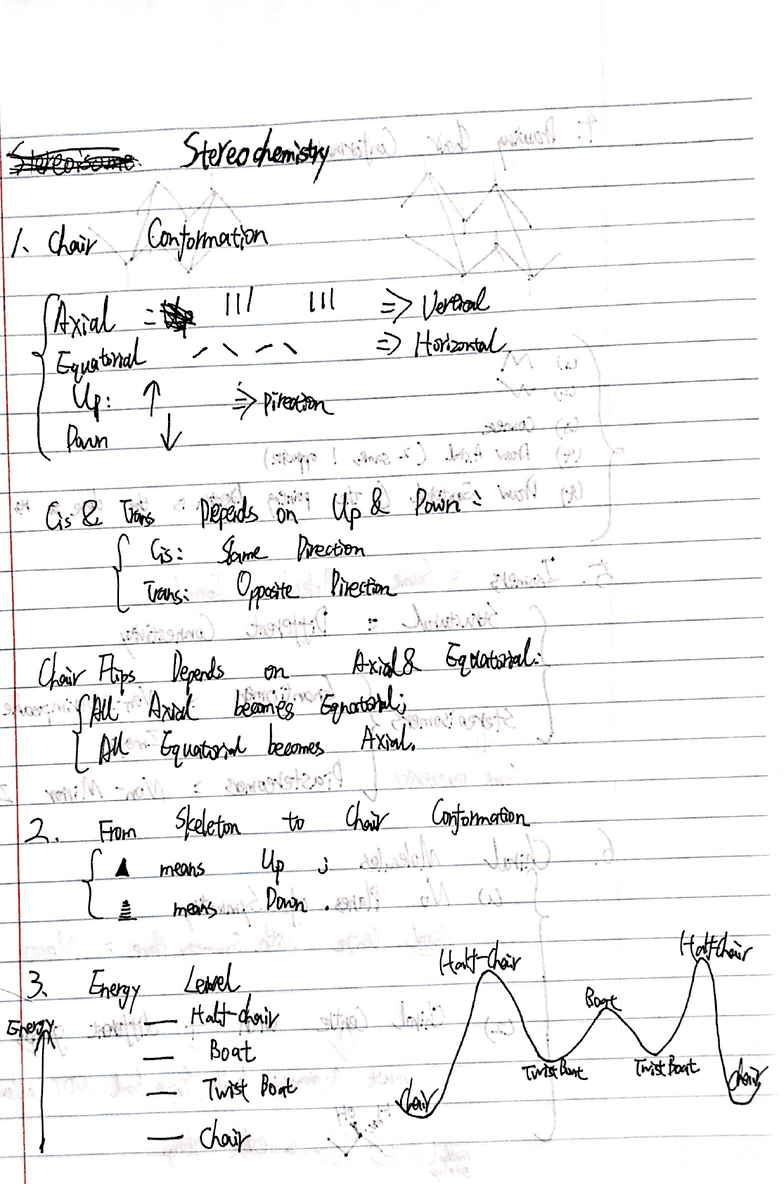 Stereochemistry
1. Chair Conformation
Axial = ||| ||| ⇒ Vertical
Equatorial ⇒ Horizontal
Up: ↑ ⇒ Direction
Down ↓
Cis & Trans Depends on Up & Down:
Cis: Same Direction
Trans: Opposite Direction
Chair Flips Depends on Axial & Equatorial:
All Axial becomes Equatorial;
All Equatorial becomes Axial.
2. From Skeleton to Chair Conformation
▲ means Up ;
means Down .
3. Energy Level
Energy
Half-chair
Boat
Twist Boat
Chair
Half-chair
Half chair
Boat
Twist Boat
Twist Boat
Chair
Chair